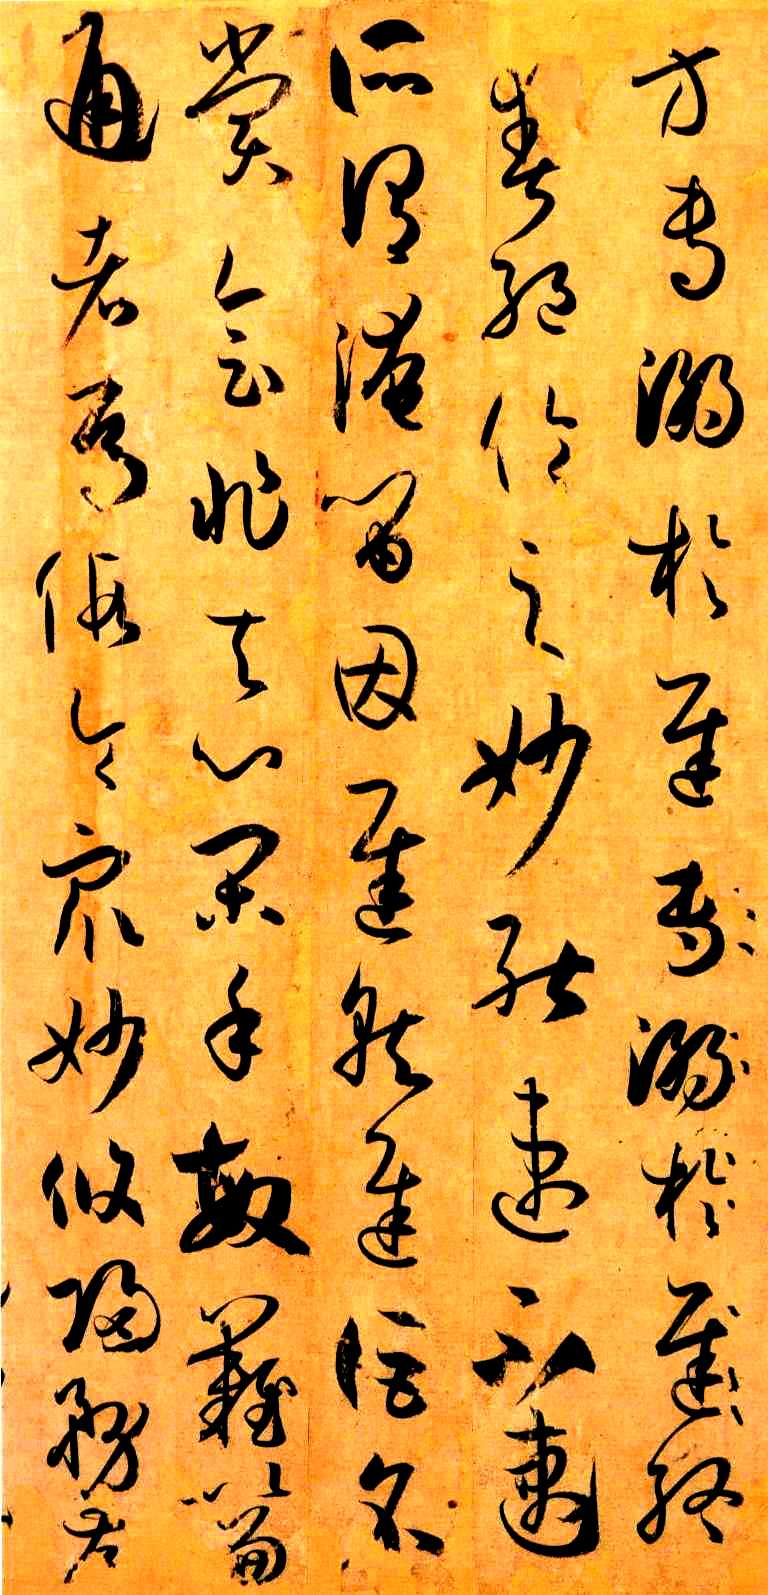 方專溺於遲專溺於遲終
爽絕倫之妙能速不速
所謂淹留因遲就遲詎名
賞會非夫心閑手敏難以兼
通者焉假令衆妙攸歸務存